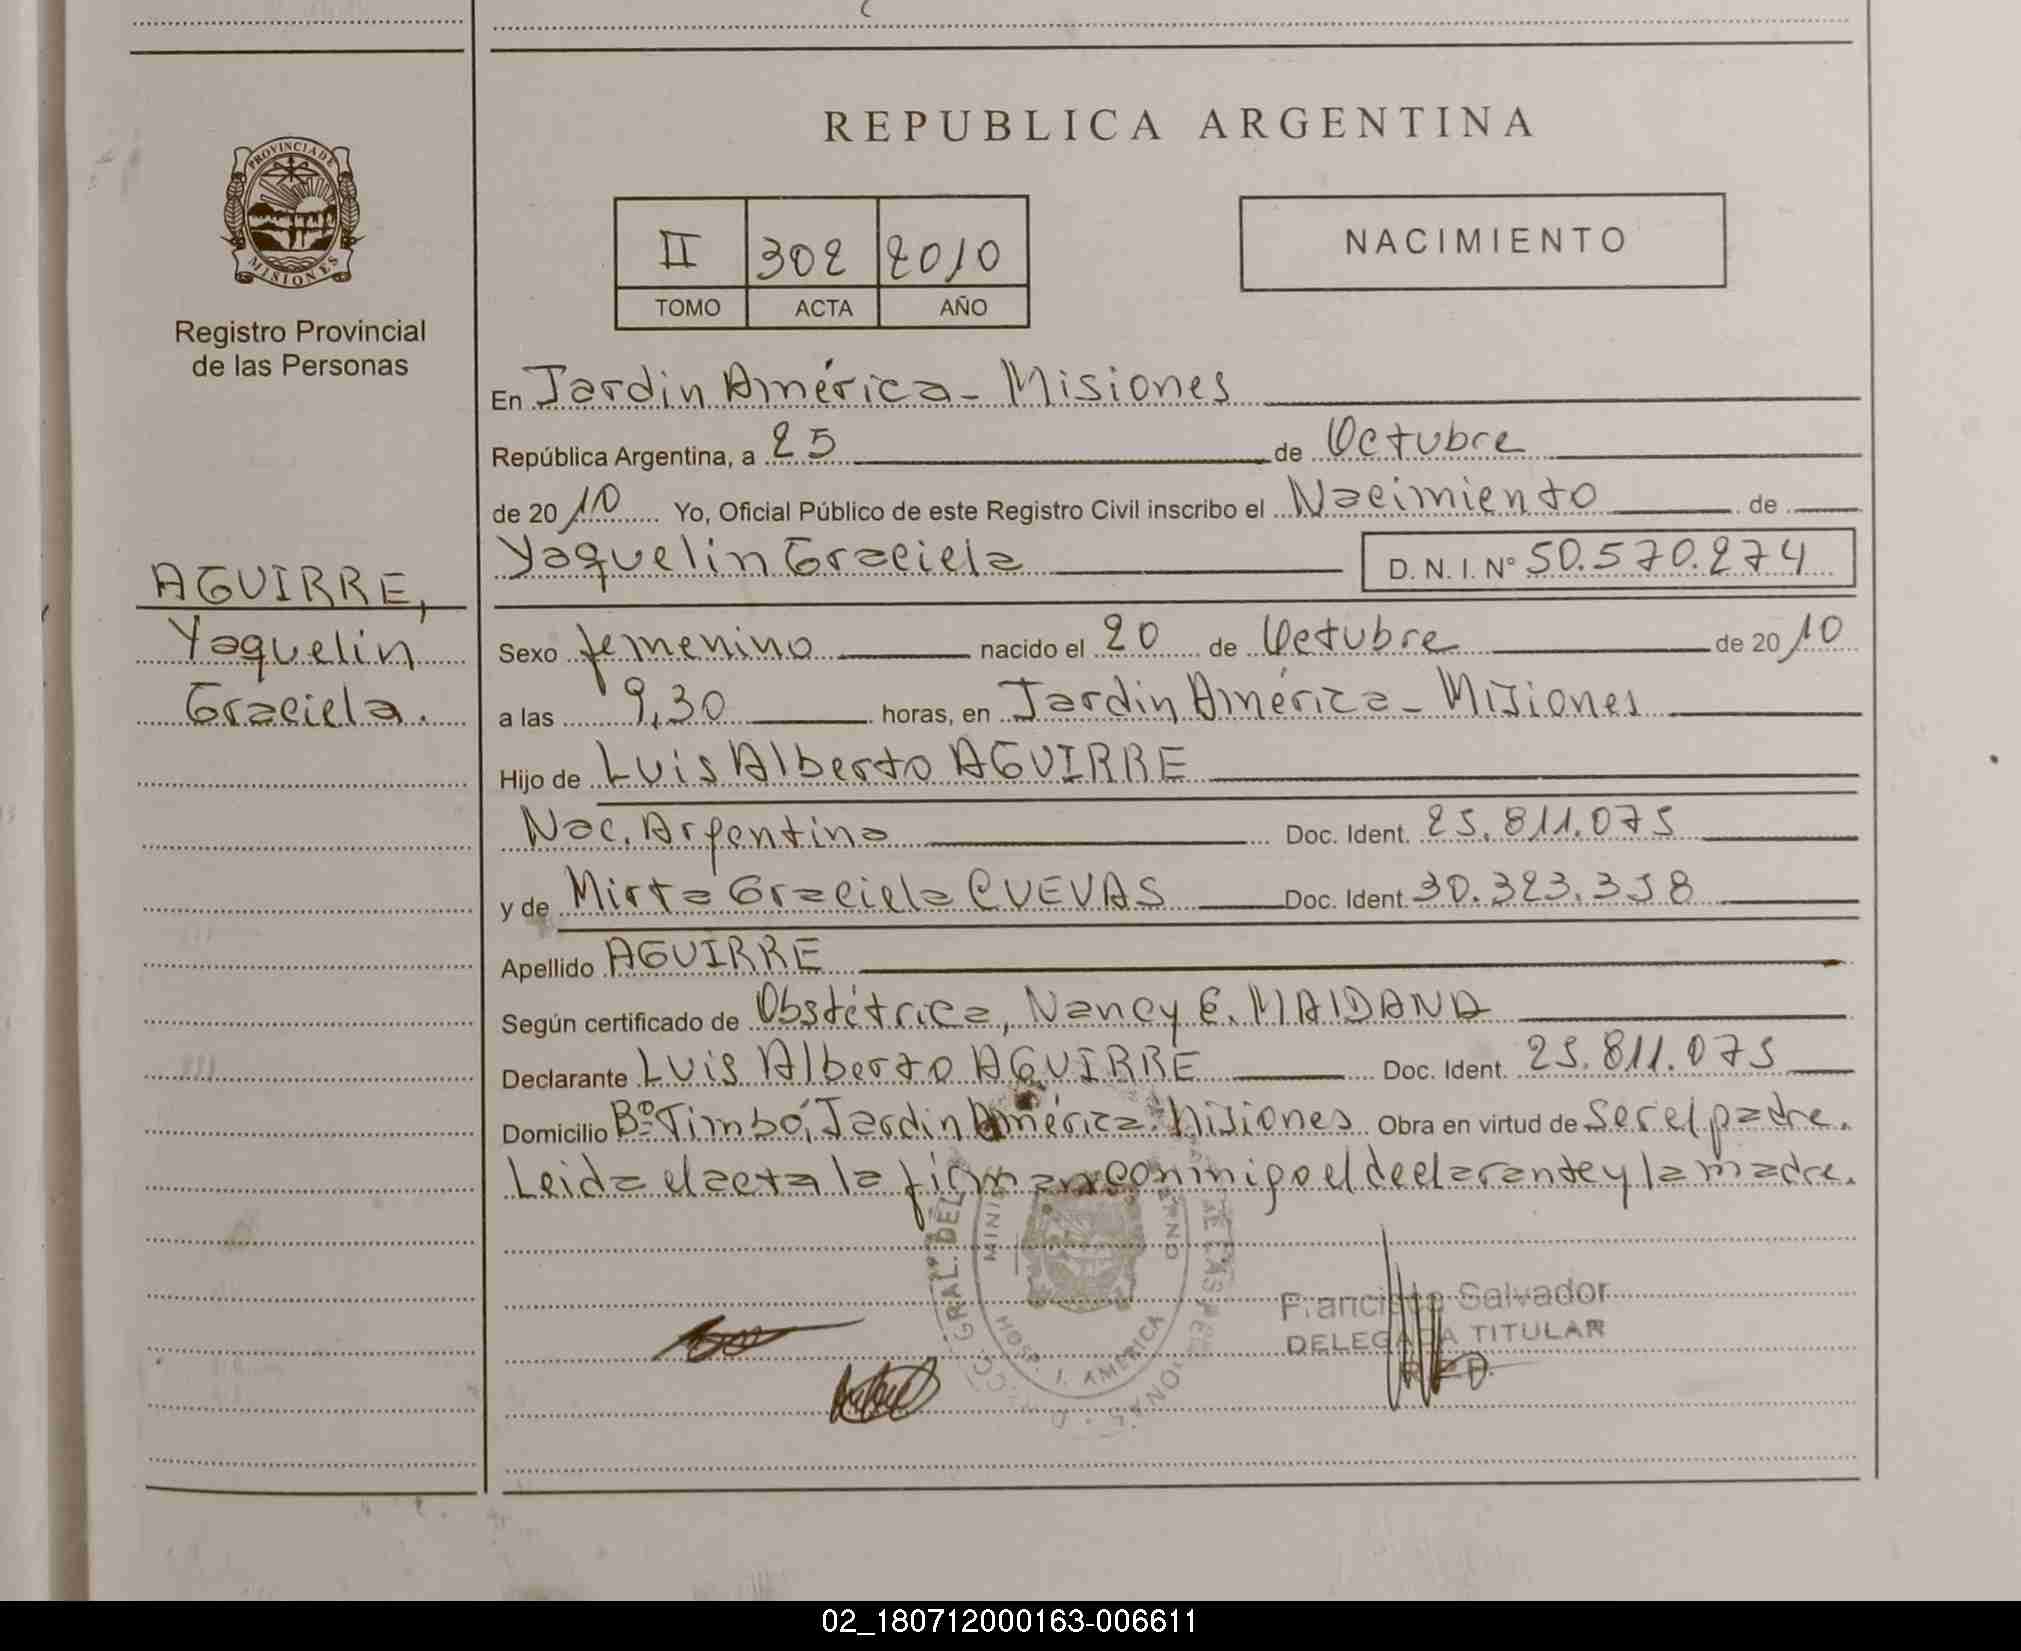 REPUBLICA ARGENTINA
PROVINCIA DE
MISIONES
Registro Provincial
de las Personas
II 302 2010
TOMO ACTA AÑO
NACIMIENTO
En Jardin América - Misiones
República Argentina, a 25 de Octubre
de 2010 Yo, Oficial Público de este Registro Civil inscribo el Nacimiento de
Yaquelin Graciela D. N. I. Nº 50.570.274
AGUIRRE,
Yaquelin
Graciela.
Sexo femenino nacido el 20 de Octubre de 2010
a las 9,30 horas, en Jardin América - Misiones
Hijo de Luis Alberto AGUIRRE
Nac. Argentina Doc. Ident. 25.811.075
y de Mirta Graciela CUEVAS Doc. Ident. 30.323.358
Apellido AGUIRRE
Según certificado de Obstétrica, Nancy E. MAIDANA
Declarante Luis Alberto AGUIRRE Doc. Ident. 25.811.075
Domicilio Bº Timbó, Jardin América. Misiones Obra en virtud de Ser el padre.
Leida el acta la firman conmigo el declarante y la madre.
GRAL. DEL
HOSP. J. AMERICA
Francisca Salvador
DELEGADA TITULAR
R.P.P.
02_180712000163-006611